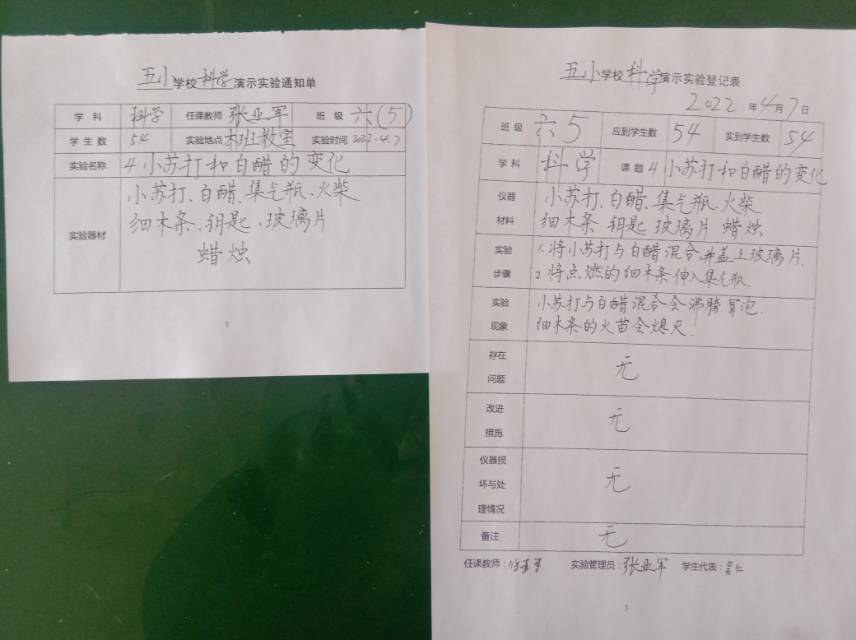 五小学校科学演示实验通知单
学 科 科学 任课教师 张亚军 班 级 六(5)
学 生 数 54 实验地点 本班教室 实验时间 2022.4.7
实验名称 4 小苏打和白醋的变化
实验器材 小苏打、白醋、集气瓶、火柴
细木条、钥匙、玻璃片
蜡烛
1
五小学校科学演示实验登记表
2022年4月7日
班 级 六5 应到学生数 54 实到学生数 54
学 科 科学 课 题 4 小苏打和白醋的变化
仪器 小苏打、白醋、集气瓶、火柴
材料 细木条 钥匙 玻璃片 蜡烛
实验 1.将小苏打与白醋混合并盖上玻璃片.
步骤 2 将点燃的细木条伸入集气瓶.
实验 小苏打与白醋混合会沸腾冒泡.
现象 细木条的火苗会熄灭.
存在
问题 无
改进
措施 无
仪器损
坏与处 无
理情况
备注 无
任课教师: 实验管理员:张亚军 学生代表: